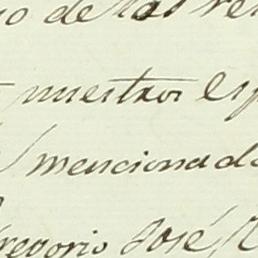 de las
nuestros
menciona
Gregorio José,